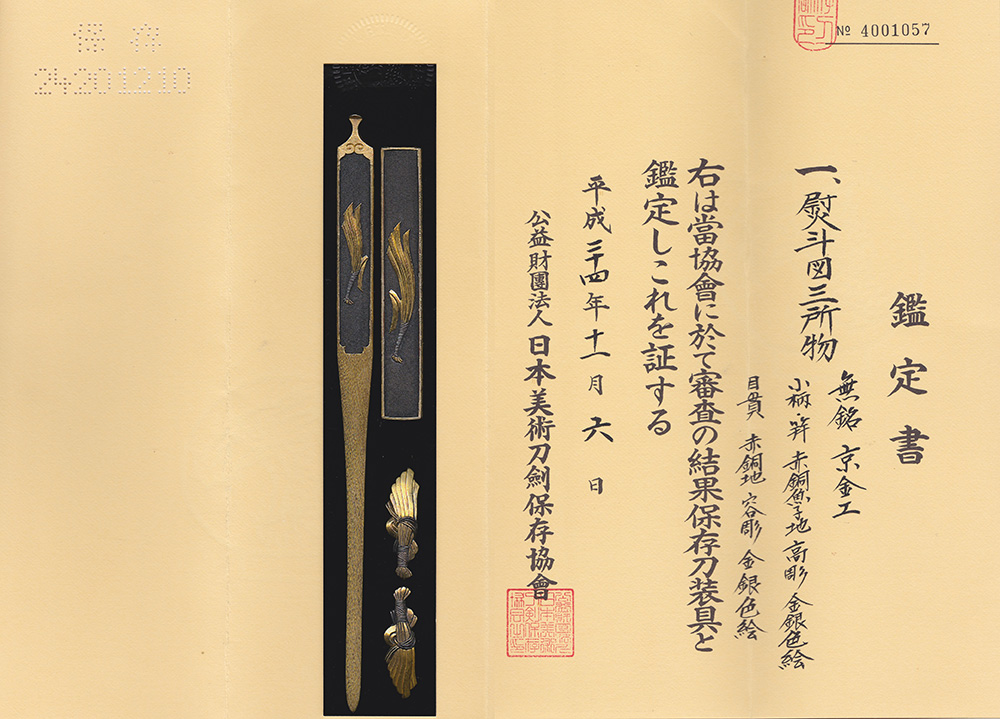 鑑定書
一、熨斗図三所物
無銘 京金工
小柄・笄 赤銅魚子地 高彫 金銀色絵
目貫 赤銅地 容彫 金銀色絵
右は當協會に於て審査の結果保存刀装具と
鑑定しこれを証する
平成二十四年十一月六日
公益財團法人 日本美術刀劍保存協會
№ 4001057
保存
24201210